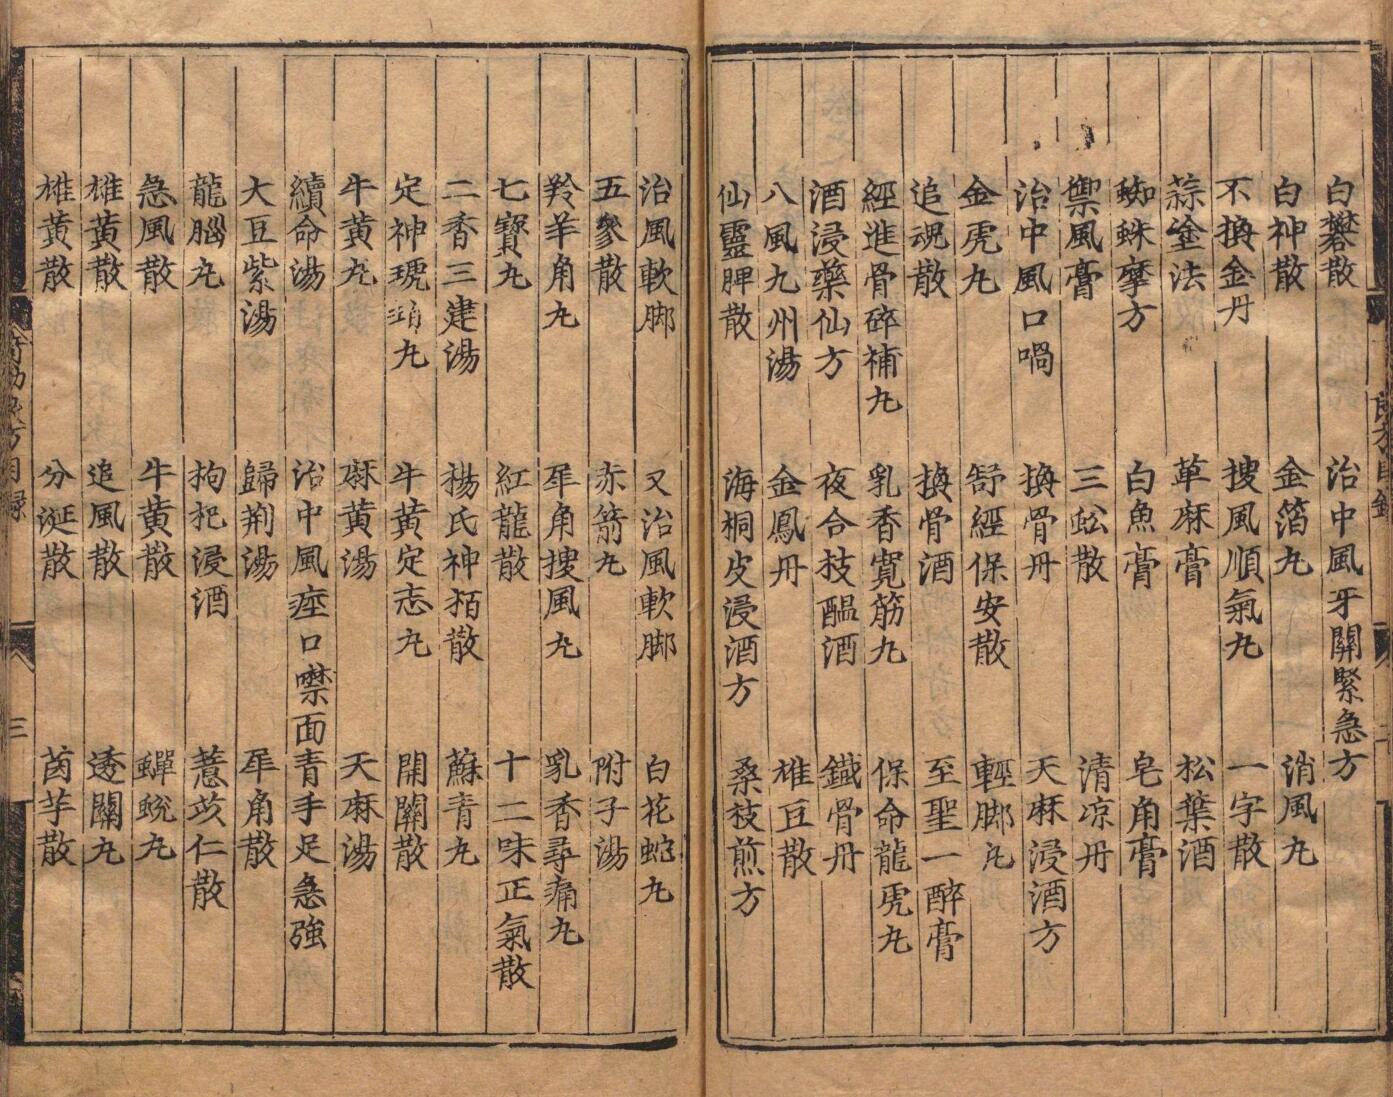 白礬散 治中風牙關緊急方
白神散 金箔丸 消風丸
不換金丹 搜風順氣丸 一字散
蒜塗法 萆麻膏 松葉酒
蜘蛛摩方 白魚膏 皂角膏
禦風膏 三蚣散 清凉丹
治中風口喎 換骨丹 天麻浸酒方
金虎丸 舒經保安散 輕脚丸
追魂散 換骨酒 至聖一醉膏
經進骨碎補丸 乳香寬筋丸 保命龍虎丸
酒浸藥仙方 夜合枝醖酒 鐵骨丹
八風九州湯 金鳳丹 推豆散
仙靈脾散 海桐皮浸酒方 桑枝煎方
治風軟脚 又治風軟脚 白花蛇丸
五參散 赤箭丸 附子湯
羚羊角丸 犀角搜風丸 乳香尋痛丸
七寶丸 紅龍散 十二味正氣散
二香三建湯 楊氏神栢散 蘇青丸
定神琥珀丸 牛黄定志丸 開關散
牛黄丸 麻黄湯 天麻湯
續命湯 治中風痙口噤面青手足急強
大豆紫湯 歸荆湯 犀角散
龍腦丸 枸杞浸酒 薏苡仁散
急風散 牛黄散 蟬蛻丸
雄黄散 追風散 透關丸
雄黄散 分涎散 茵芋散
三